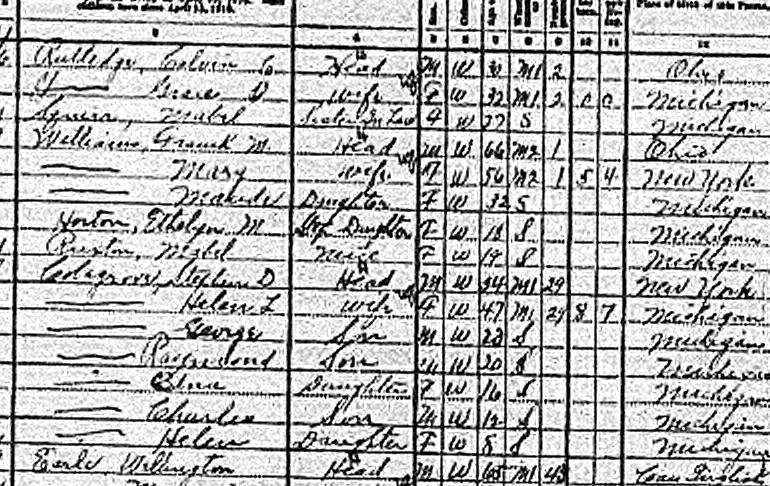 3 4 5 6 7 8 9 10 11 12
Rutledge, Calvin G Head M W 30 M1 2 Ohio
Grace D Wife F W 32 M1 2 0 0 Michigan
Mabel Sister In Law F W 27 S Michigan
Williams, Frank M. Head M W 66 M2 1 Ohio
Mary Wife F W 56 M2 1 5 4 New York
Maude Daughter F W 32 S Michigan
Horton, Ethelyn M Step Daughter F W 18 S Michigan
Mabel Niece F W 19 S Michigan
Colegrove, Stephen D Head M W 54 M1 29 New York
Helen L Wife F W 47 M1 29 8 7 Michigan
George Son M W 23 S Michigan
Raymond Son M W 20 S Michigan
Edna Daughter F W 16 S Michigan
Charles Son M W 12 S Michigan
Helen Daughter F W 8 S Michigan
Earle, Wellington Head M W 65 M1 43 Can English